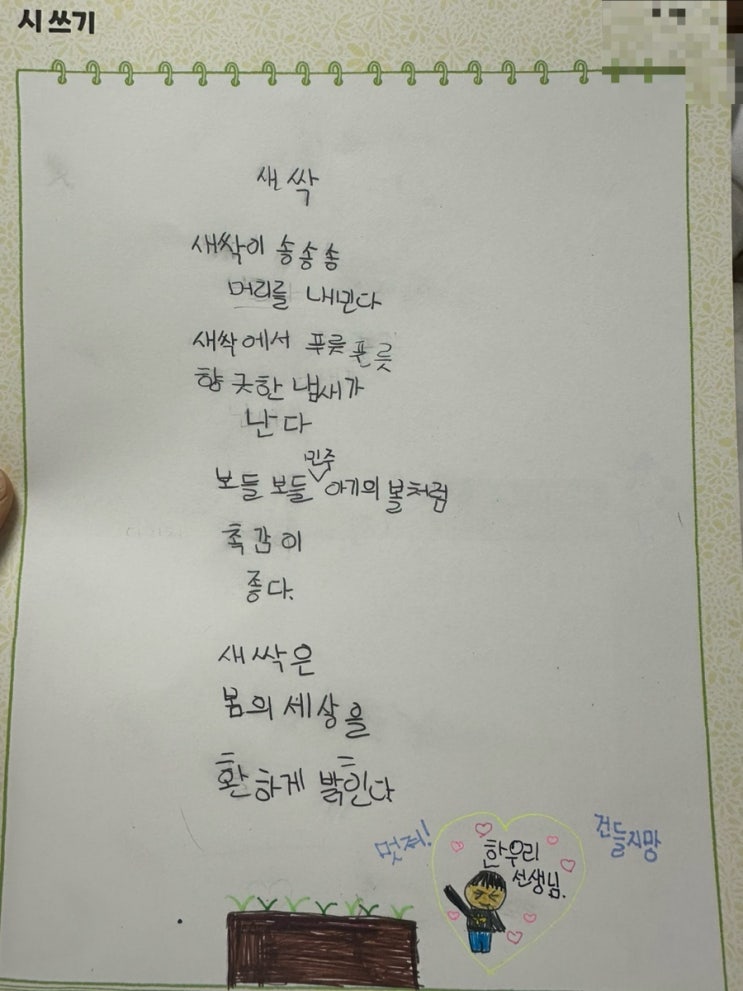 시 쓰기
새싹
새싹이 송송송
머리를 내민다
새싹에서 푸릇푸릇
향긋한 냄새가
난다
민주
보들 보들 아기의 볼처럼
촉감이
좋다.
새싹은
봄의 세상을
환하게 밝힌다
멋져!
한우리
선생님.
건들지망